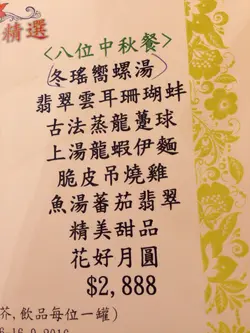 精選
<八位中秋餐>
冬瑤嚮螺湯
翡翠雲耳珊瑚蚌
古法蒸龍躉球
上湯龍蝦伊麵
脆皮吊燒雞
魚湯蕃茄翡翠
精美甜品
花好月圓
$2,888
芥,飲品每位一罐)